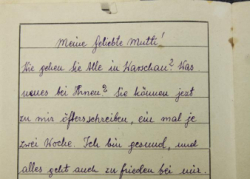 Meine Geliebte Mutti!
Wie gehen Sie Alle in Warschau? Was
neues bei Ihnen? Sie können jezt
zu mir öfterschreiben, ein mal je
zwei Woche. Ich bin gesund, und
alles geht auch zu frieden bei mir.